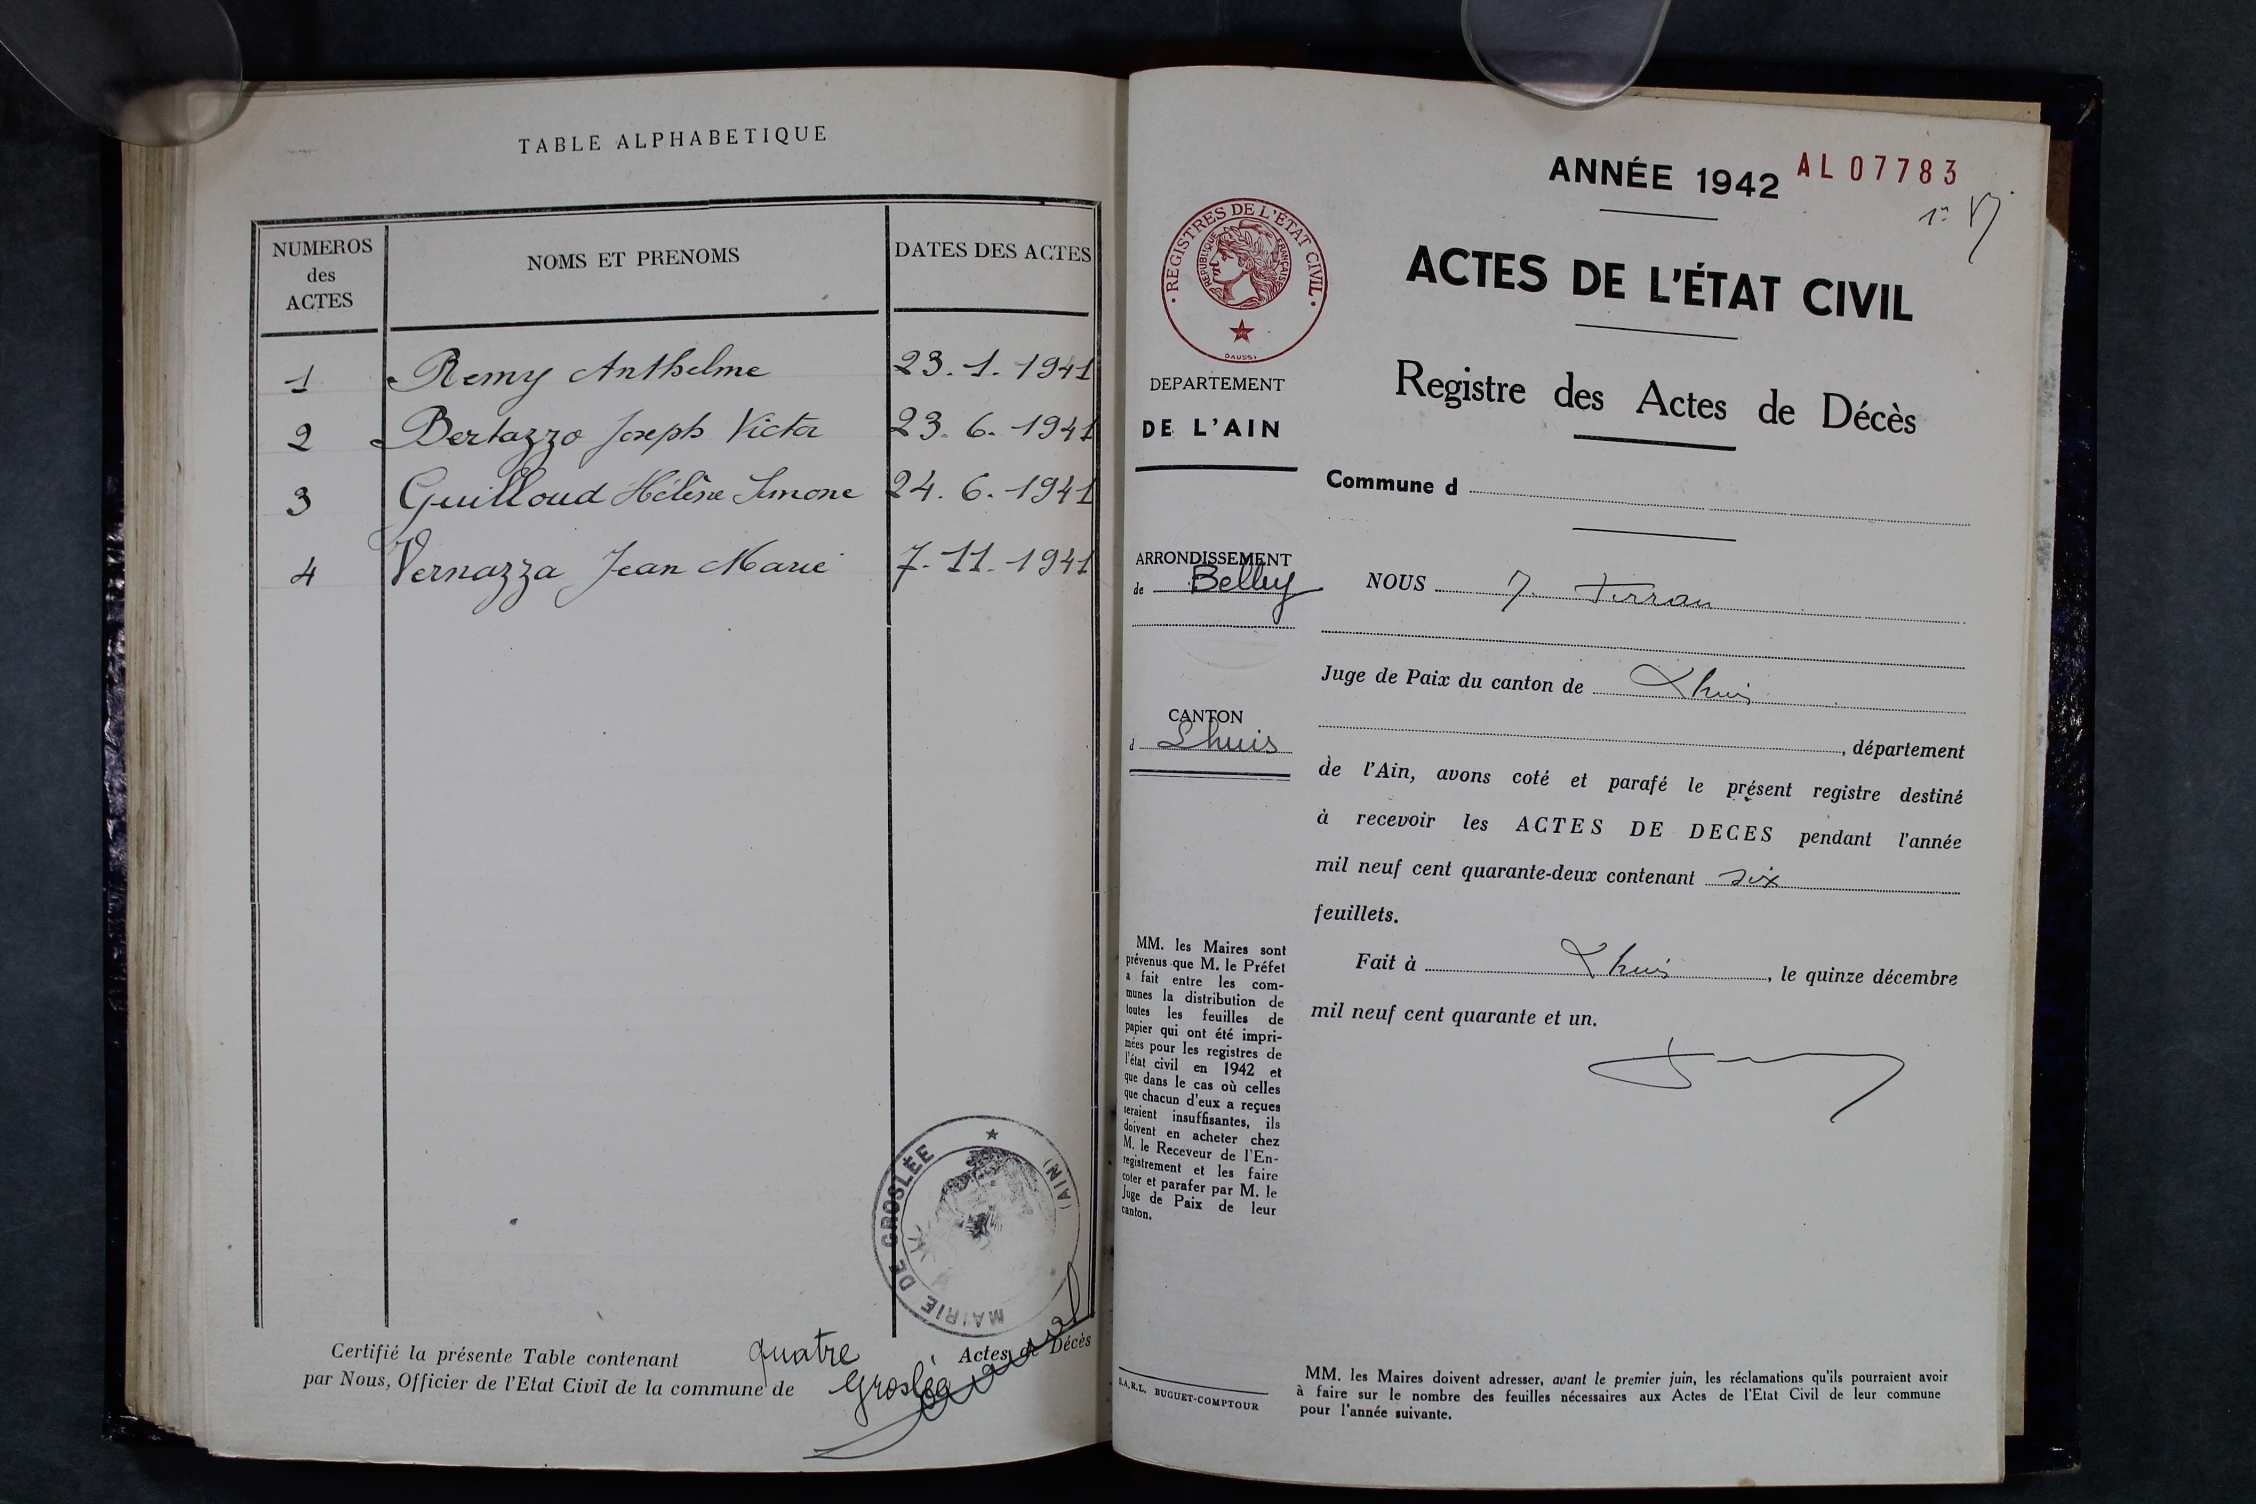 TABLE ALPHABETIQUE
NUMEROS
des
ACTES
NOMS ET PRENOMS
DATES DES ACTES
1 Remy Anthelme 23.1.1941
2 Bertazzo Joseph Victor 23.6.1941
3 Guilloud Hélène Simone 24.6.1941
4 Vernazza Jean Marie 7.11.1941
MAIRIE DE GROSLÉE ★ (AIN)
Certifié la présente Table contenant quatre Actes de Décès
par Nous, Officier de l'Etat Civil de la commune de Groslée
ANNÉE 1942 AL 07783
REGISTRES DE L'ÉTAT CIVIL
RÉPUBLIQUE FRANÇAISE
DAUSSY
DEPARTEMENT
DE L'AIN
ARRONDISSEMENT
de Belley
CANTON
d Lhuis
MM. les Maires sont
prévenus que M. le Préfet
a fait entre les com-
munes la distribution de
toutes les feuilles de
papier qui ont été impri-
mées pour les registres de
l'état civil en 1942 et
que dans le cas où celles
que chacun d'eux a reçues
seraient insuffisantes, ils
doivent en acheter chez
M. le Receveur de l'En-
registrement et les faire
coter et parafer par M. le
Juge de Paix de leur
canton.
S.A.R.L. BUGUET-COMPTOUR
ACTES DE L'ÉTAT CIVIL
Registre des Actes de Décès
Commune d
NOUS
Juge de Paix du canton de Lhuis
, département
de l'Ain, avons coté et parafé le présent registre destiné
à recevoir les ACTES DE DECES pendant l'année
mil neuf cent quarante-deux contenant six
feuillets.
Fait à Lhuis, le quinze décembre
mil neuf cent quarante et un.
MM. les Maires doivent adresser, avant le premier juin, les réclamations qu'ils pourraient avoir
à faire sur le nombre des feuilles nécessaires aux Actes de l'Etat Civil de leur commune
pour l'année suivante.